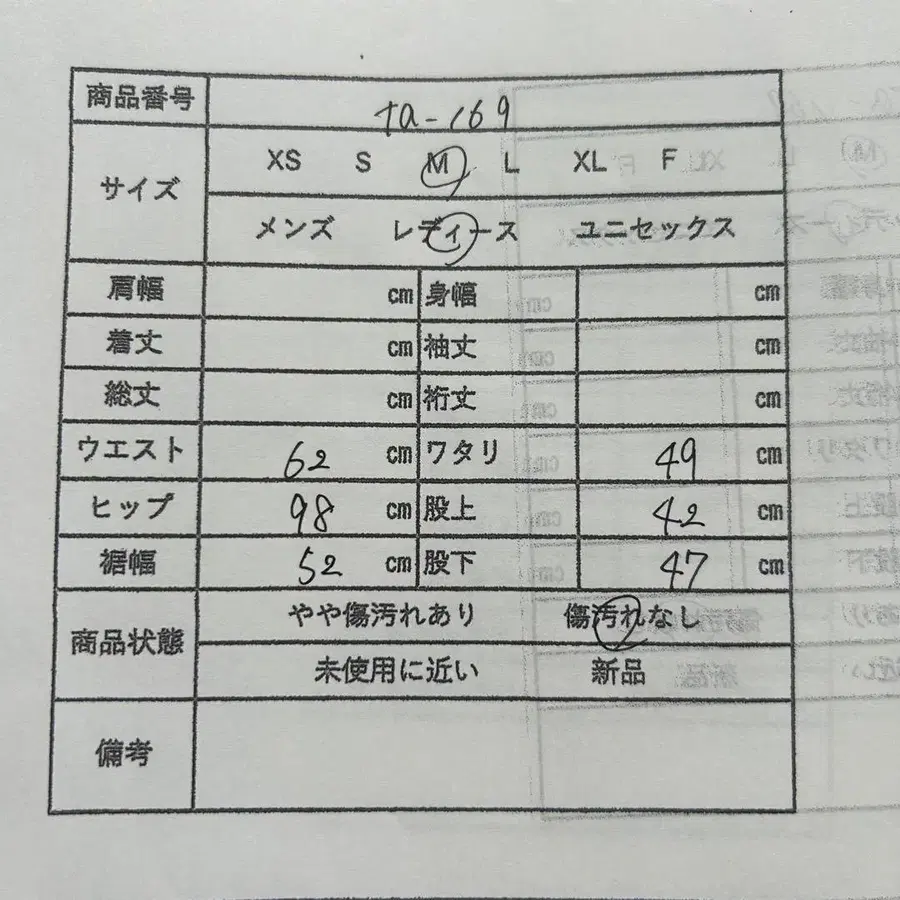 商品番号 ta-169
サイズ XS S M L XL F
メンズ レディース ユニセックス
肩幅 cm 身幅 cm
着丈 cm 袖丈 cm
総丈 cm 裄丈 cm
ウエスト 62 cm ワタリ 49 cm
ヒップ 98 cm 股上 42 cm
裾幅 52 cm 股下 47 cm
商品状態 やや傷汚れあり 傷汚れなし
未使用に近い 新品
備考